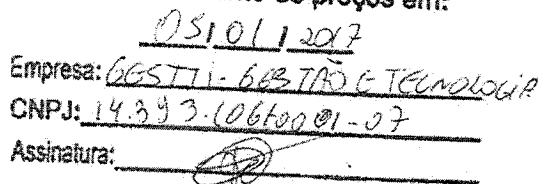 de preços em:
05/01/2017
Empresa: GESTTI - GESTÃO E TECNOLOGIA
CNPJ: 14.393.106/0001-07
Assinatura: